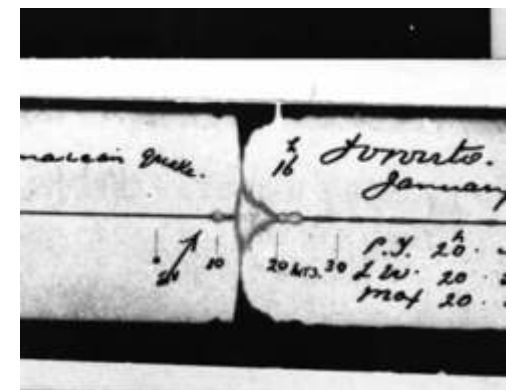 maican Quake.
h
16 Toronto.
January
10 20 MTS. 30
P.T. 20 h.
L.W. 20.
Max 20.